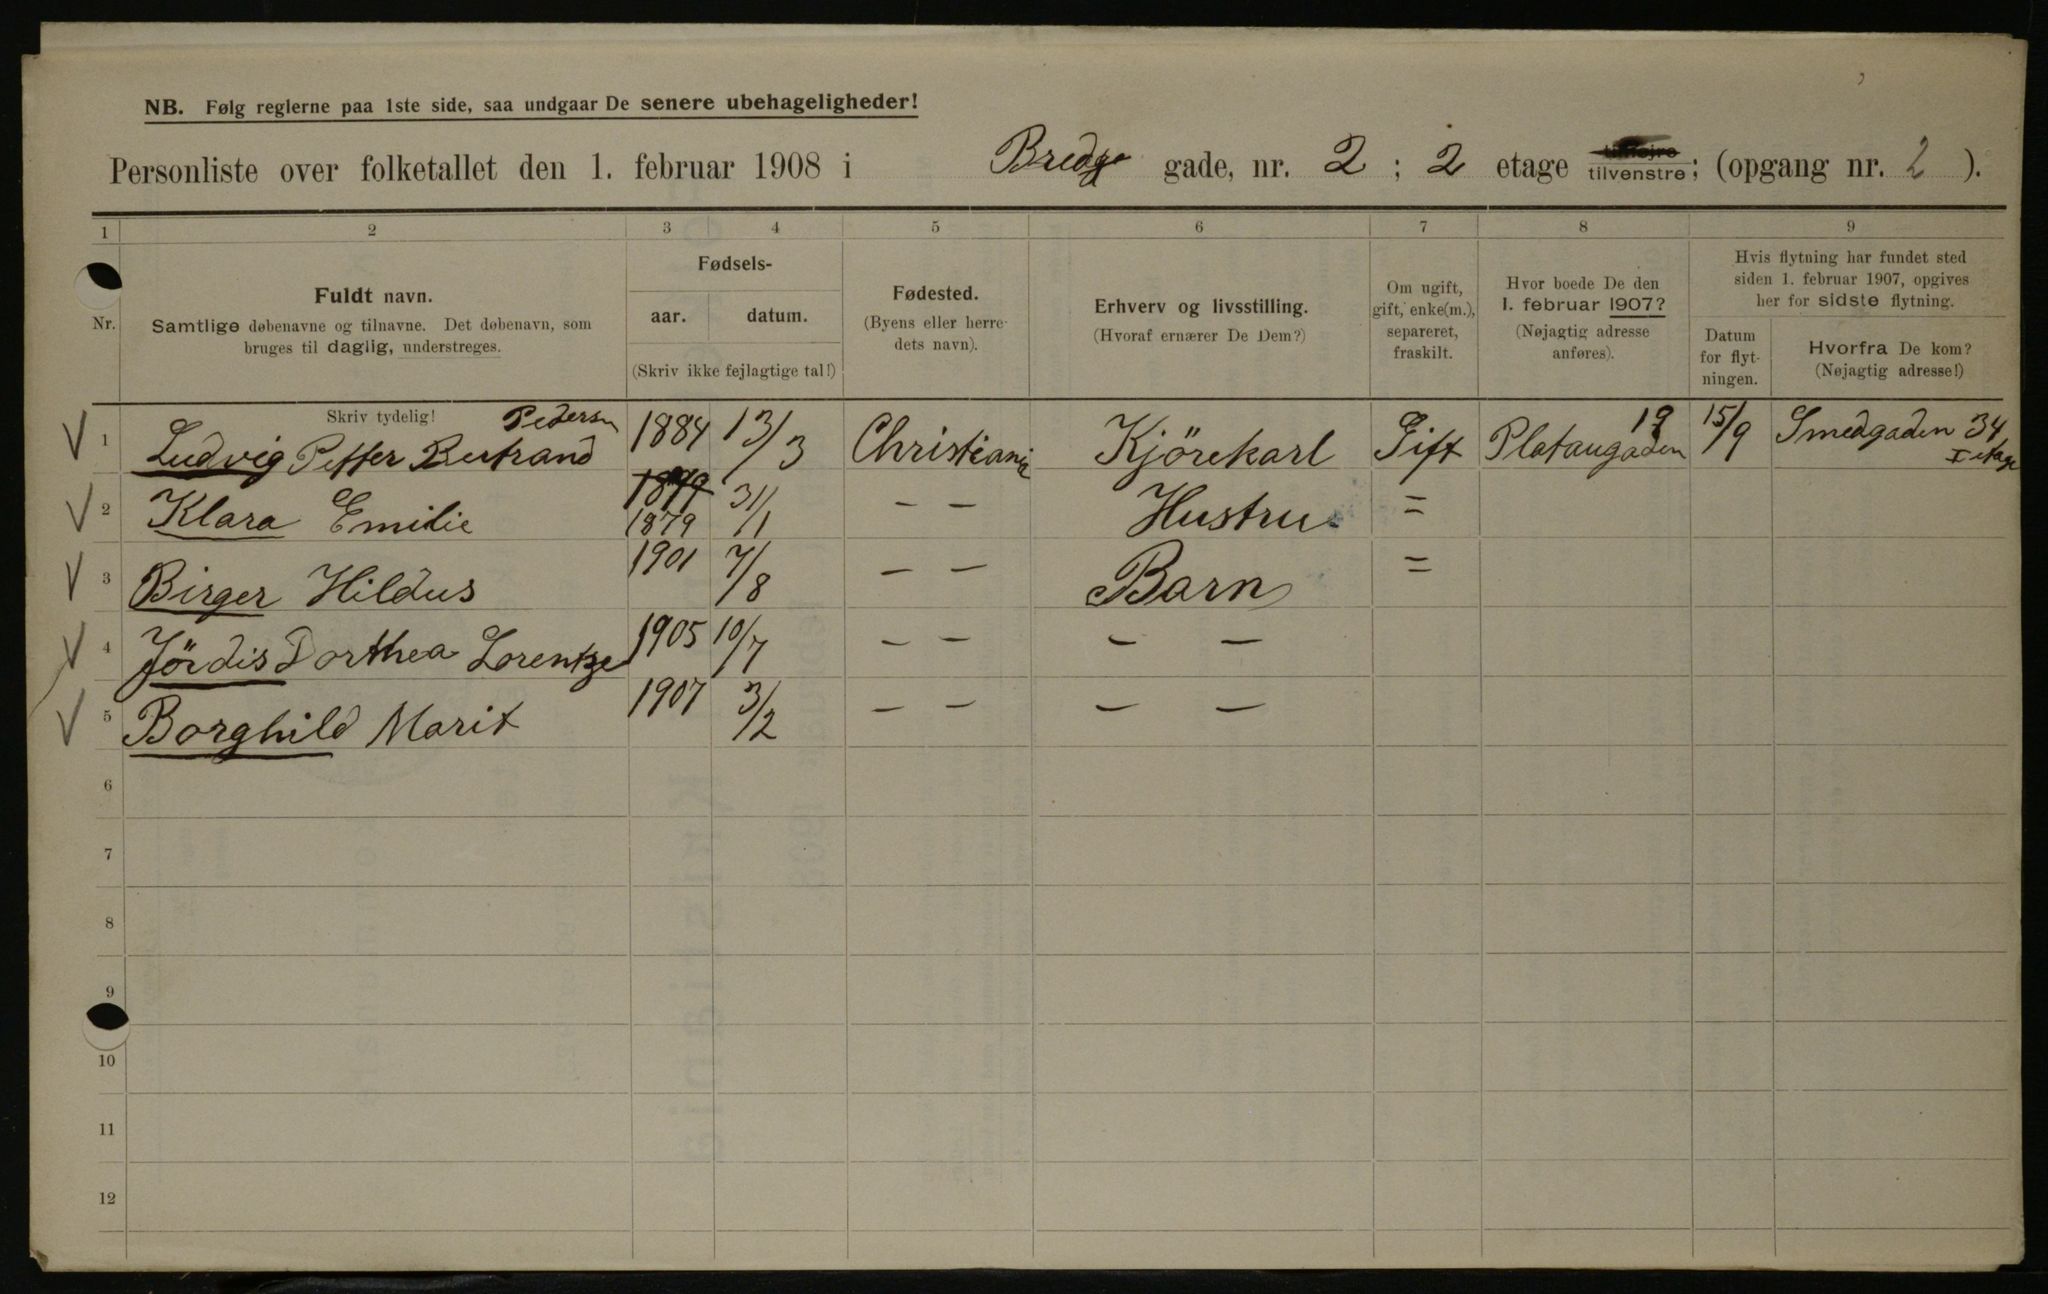 NB. Følg reglerne paa 1ste side, saa undgaar De senere ubehageligheder!
Personliste over folketallet den 1. februar 1908 i Bredg gade, nr. 2 ; 2 etage tilhøjre tilvenstre; (opgang nr. 2 ).
1 2 3 4 5 6 7 8 9
Nr.
Fuldt navn.
Samtlige døbenavne og tilnavne. Det døbenavn, som
bruges til daglig, understreges.
Fødsels-
aar. datum.
(Skriv ikke fejlagtige tal!)
Fødested.
(Byens eller herre-
dets navn).
Erhverv og livsstilling.
(Hvoraf ernærer De Dem?)
Om ugift,
gift, enke(m.),
separeret,
fraskilt.
Hvor boede De den
1. februar 1907?
(Nøjagtig adresse
anføres).
Hvis flytning har fundet sted
siden 1. februar 1907, opgives
her for sidste flytning.
Datum
for flyt-
ningen.
Hvorfra De kom?
(Nøjagtig adresse!)
Skriv tydelig!
V 1 Ludvig Petter Bertrand Pedersen 1884 13/3 Christiania Kjörekarl Gift Plataugaden 19 15/9 Smedgaden 34 I etage
1879
V 2 Klara Emilie 1879 31/1 — — Hustru =
V 3 Birger Hildus 1901 7/8 — — Barn =
V 4 Jördis Dorthea Lorentze 1905 10/7 — — — —
V 5 Borghild Marit 1907 3/2 — — — —
6
7
8
9
10
11
12